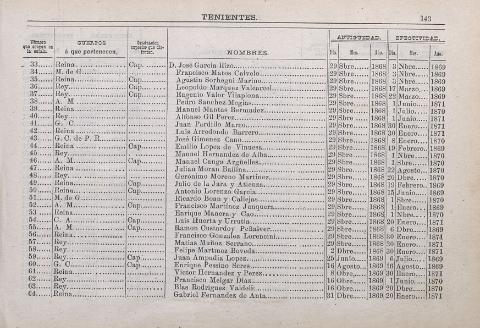 TENIENTES. 143
Número que ocupan en la escala. CUERPOS á que pertenecen. Graduacion superior que disfrutan. NOMBRES. ANTIGÜEDAD. EFECTIVIDAD.
Dia. Mes. Año. Dia. Mes. Año.
33 Reina Cap. D. José García Rizo 29 Sbre. 1868 3 Nbre. 1869
34 M. de G. Francisco Matos Calvelo 29 Sbre. 1868 3 Nbre. 1869
35 Reina Cap. Agustin Sorhegui Marino 29 Sbre. 1868 3 Nbre. 1869
36 Rey Cap. Leopoldo Marquez Valcarcel 29 Sbre. 1868 17 Marzo 1869
37 Rey Cap. Eugenio Valor Vilaplana 29 Sbre. 1868 22 Marzo 1869
38 A. M. Pedro Sanchez Mogins 29 Sbre. 1868 1 Junio 1871
39 Reina Manuel Mantos Bermudez 29 Sbre. 1868 1 Julio 1870
40 Rey Alfonso Gil Perez 29 Sbre. 1868 1 Junio 1871
41 G. C. Juan Pardillo Marco 29 Sbre. 1868 30 Enero 1871
42 Reina Luis Arredondo Barrero 29 Sbre. 1868 30 Enero 1871
43 G. C. de P. R. José Gimenez Cano 29 Sbre. 1868 8 Enero 1870
44 Reina Cap. Emilio Lopez de Vinuesa 29 Sbre. 1868 19 Febrero 1869
45 Rey Manuel Hernandez de Alba 29 Sbre. 1868 1 Nbre. 1870
46 A. M. Cap. Manuel Canga Argüelles 29 Sbre. 1868 1 Sbre. 1870
47 Rey Julian Moran Ballina 29 Sbre. 1868 22 Agosto 1870
48 Rey Gerónimo Moreno Martinez 29 Sbre. 1868 20 Dbre. 1870
49 Reina Cap. Julio de la Jara y Atienza 29 Sbre. 1868 19 Febrero 1869
50 Reina Cap. Antonio Lorenzo García 29 Sbre. 1868 15 Junio 1869
51 M. de G. Ricardo Bean y Callejas 29 Sbre. 1868 1 Sbre. 1870
52 A. M. Cap. Francisco Martinez Junquera 29 Sbre. 1868 1 Enero 1869
53 Reina Enrique Manera y Cao 29 Sbre. 1868 1 Nbre. 1870
54 C. A. Cap. Luis Huerta y Urrutia 29 Sbre. 1868 20 Enero 1871
55 A. M. Cap. Ramon Custardoy Peñalver 29 Sbre. 1868 6 Dbre. 1869
56 Reina Francisco Gonzalez Lorenzoni 29 Sbre. 1868 30 Enero 1869
57 Rey Matías Muñoz Serrano 29 Sbre. 1868 30 Enero 1871
58 Rey Felipe Martinez Boveda 2 Dbre. 1868 30 Enero 1871
59 Rey Cap. Juan Ampudia Lopez 25 Junio 1869 6 Julio 1869
60 G. C. Cap. Enrique Pestino Seres 16 Agosto 1869 16 Agosto 1869
61 Reina Victor Hernandez y Perez 8 Obre. 1869 30 Enero 1871
62 Reina Francisco Melgar Diaz 16 Obre. 1869 1 Julio 1870
63 Rey Blas Rodriguez Valdelli 16 Obre. 1869 20 Dbre. 1870
64 Reina Gabriel Fernandez de Anta 31 Dbre. 1869 1 Junio 1871